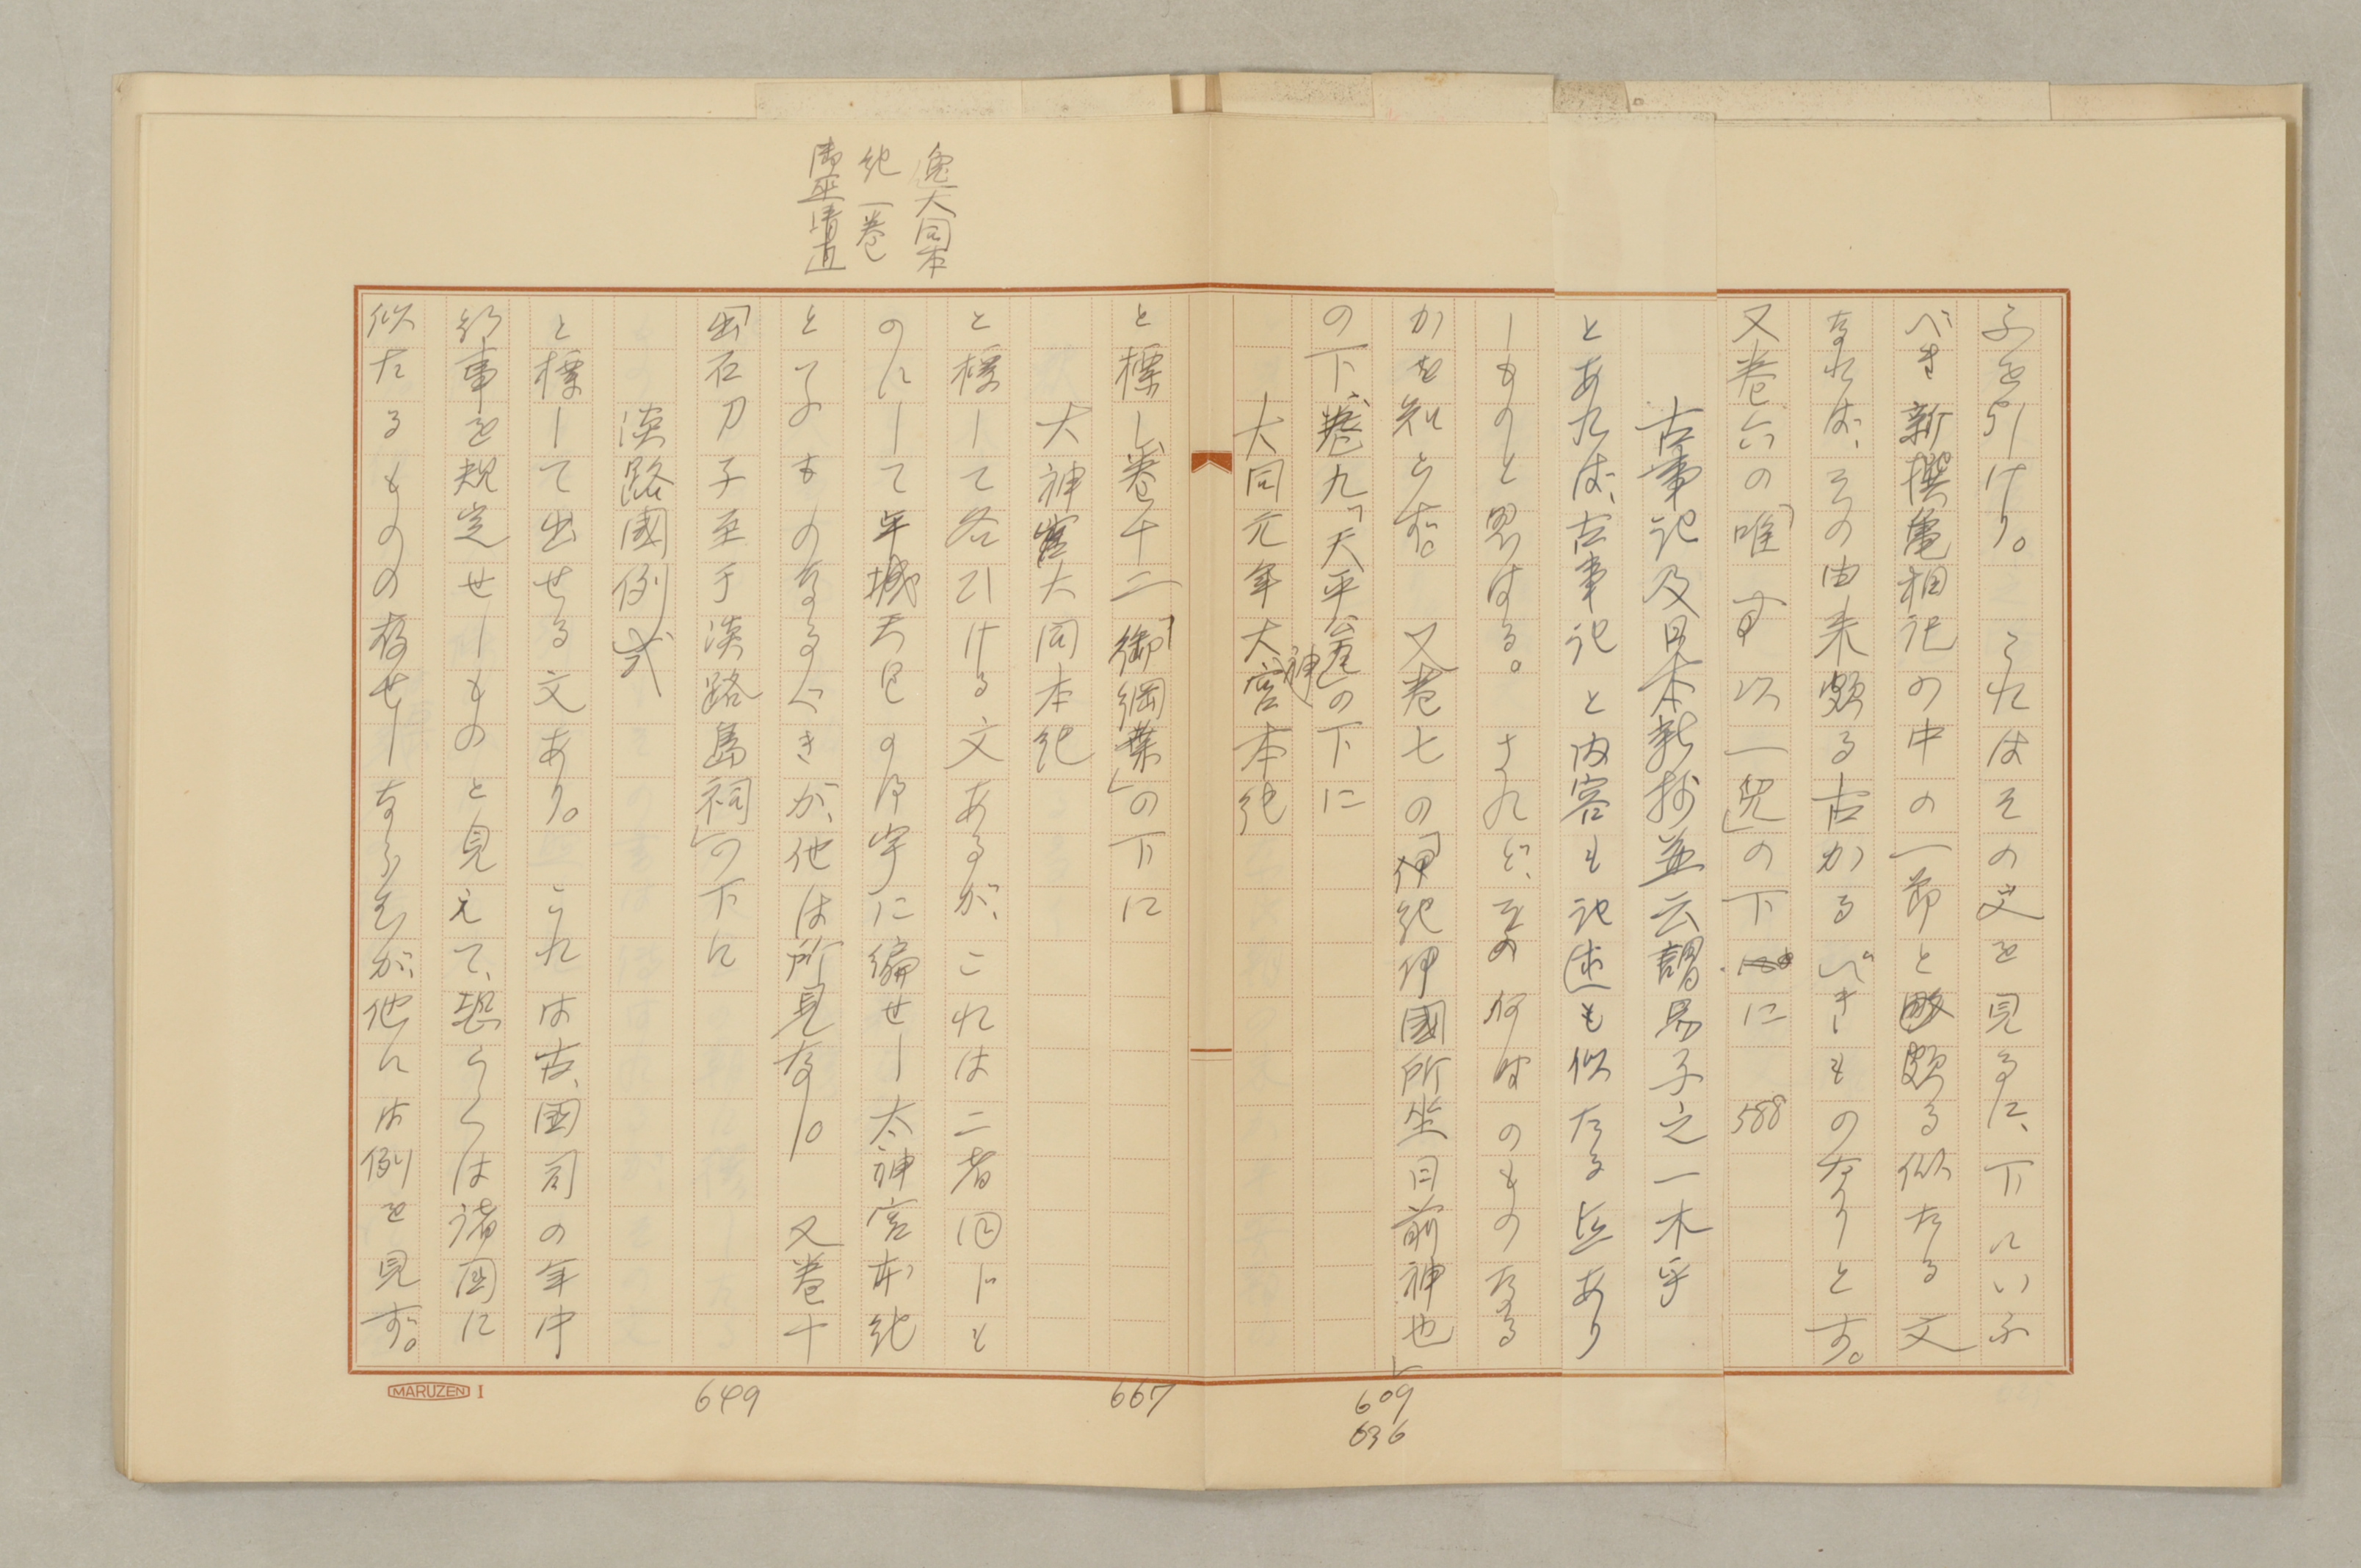 ふを引けり。　これはその文を見るに、下にいふ
べき新撰亀相記の中の一節と頗る似たる文
なれば、その由来頗る古かるべきものなりとす。
又巻六の「唯　以一兕」の下に　588
古事記及日本新抄並云謂易子之一木乎
とあれば、古事記と内容も記述も似たる点あり
しものと思はる。　されど、その何時のものなる
かを知らず。　又巻七の「伊紀伊國所坐日前神也」
の下、巻九「天平瓮」の下に
大同元年大神宮本紀
と標し、巻十二「御綱葉」の下に
大神宮大同本紀
と標して各引ける文あるが、これは二者同じも
のにして平城天皇の御宇に編せし太神宮本紀
といふものなるべきが、他は所見なし。　又巻十
「出石刀子至于淡路島祠」の下に
淡路國例式
と標して出せる文あり。　これは古、国司の年中
行事を規定せしものと見えて、恐らくは諸国に
似たるものの存せしならむが、他には例を見ず。
大同本
紀一巻
御巫清直
609
636
667
649
MARUZEN I